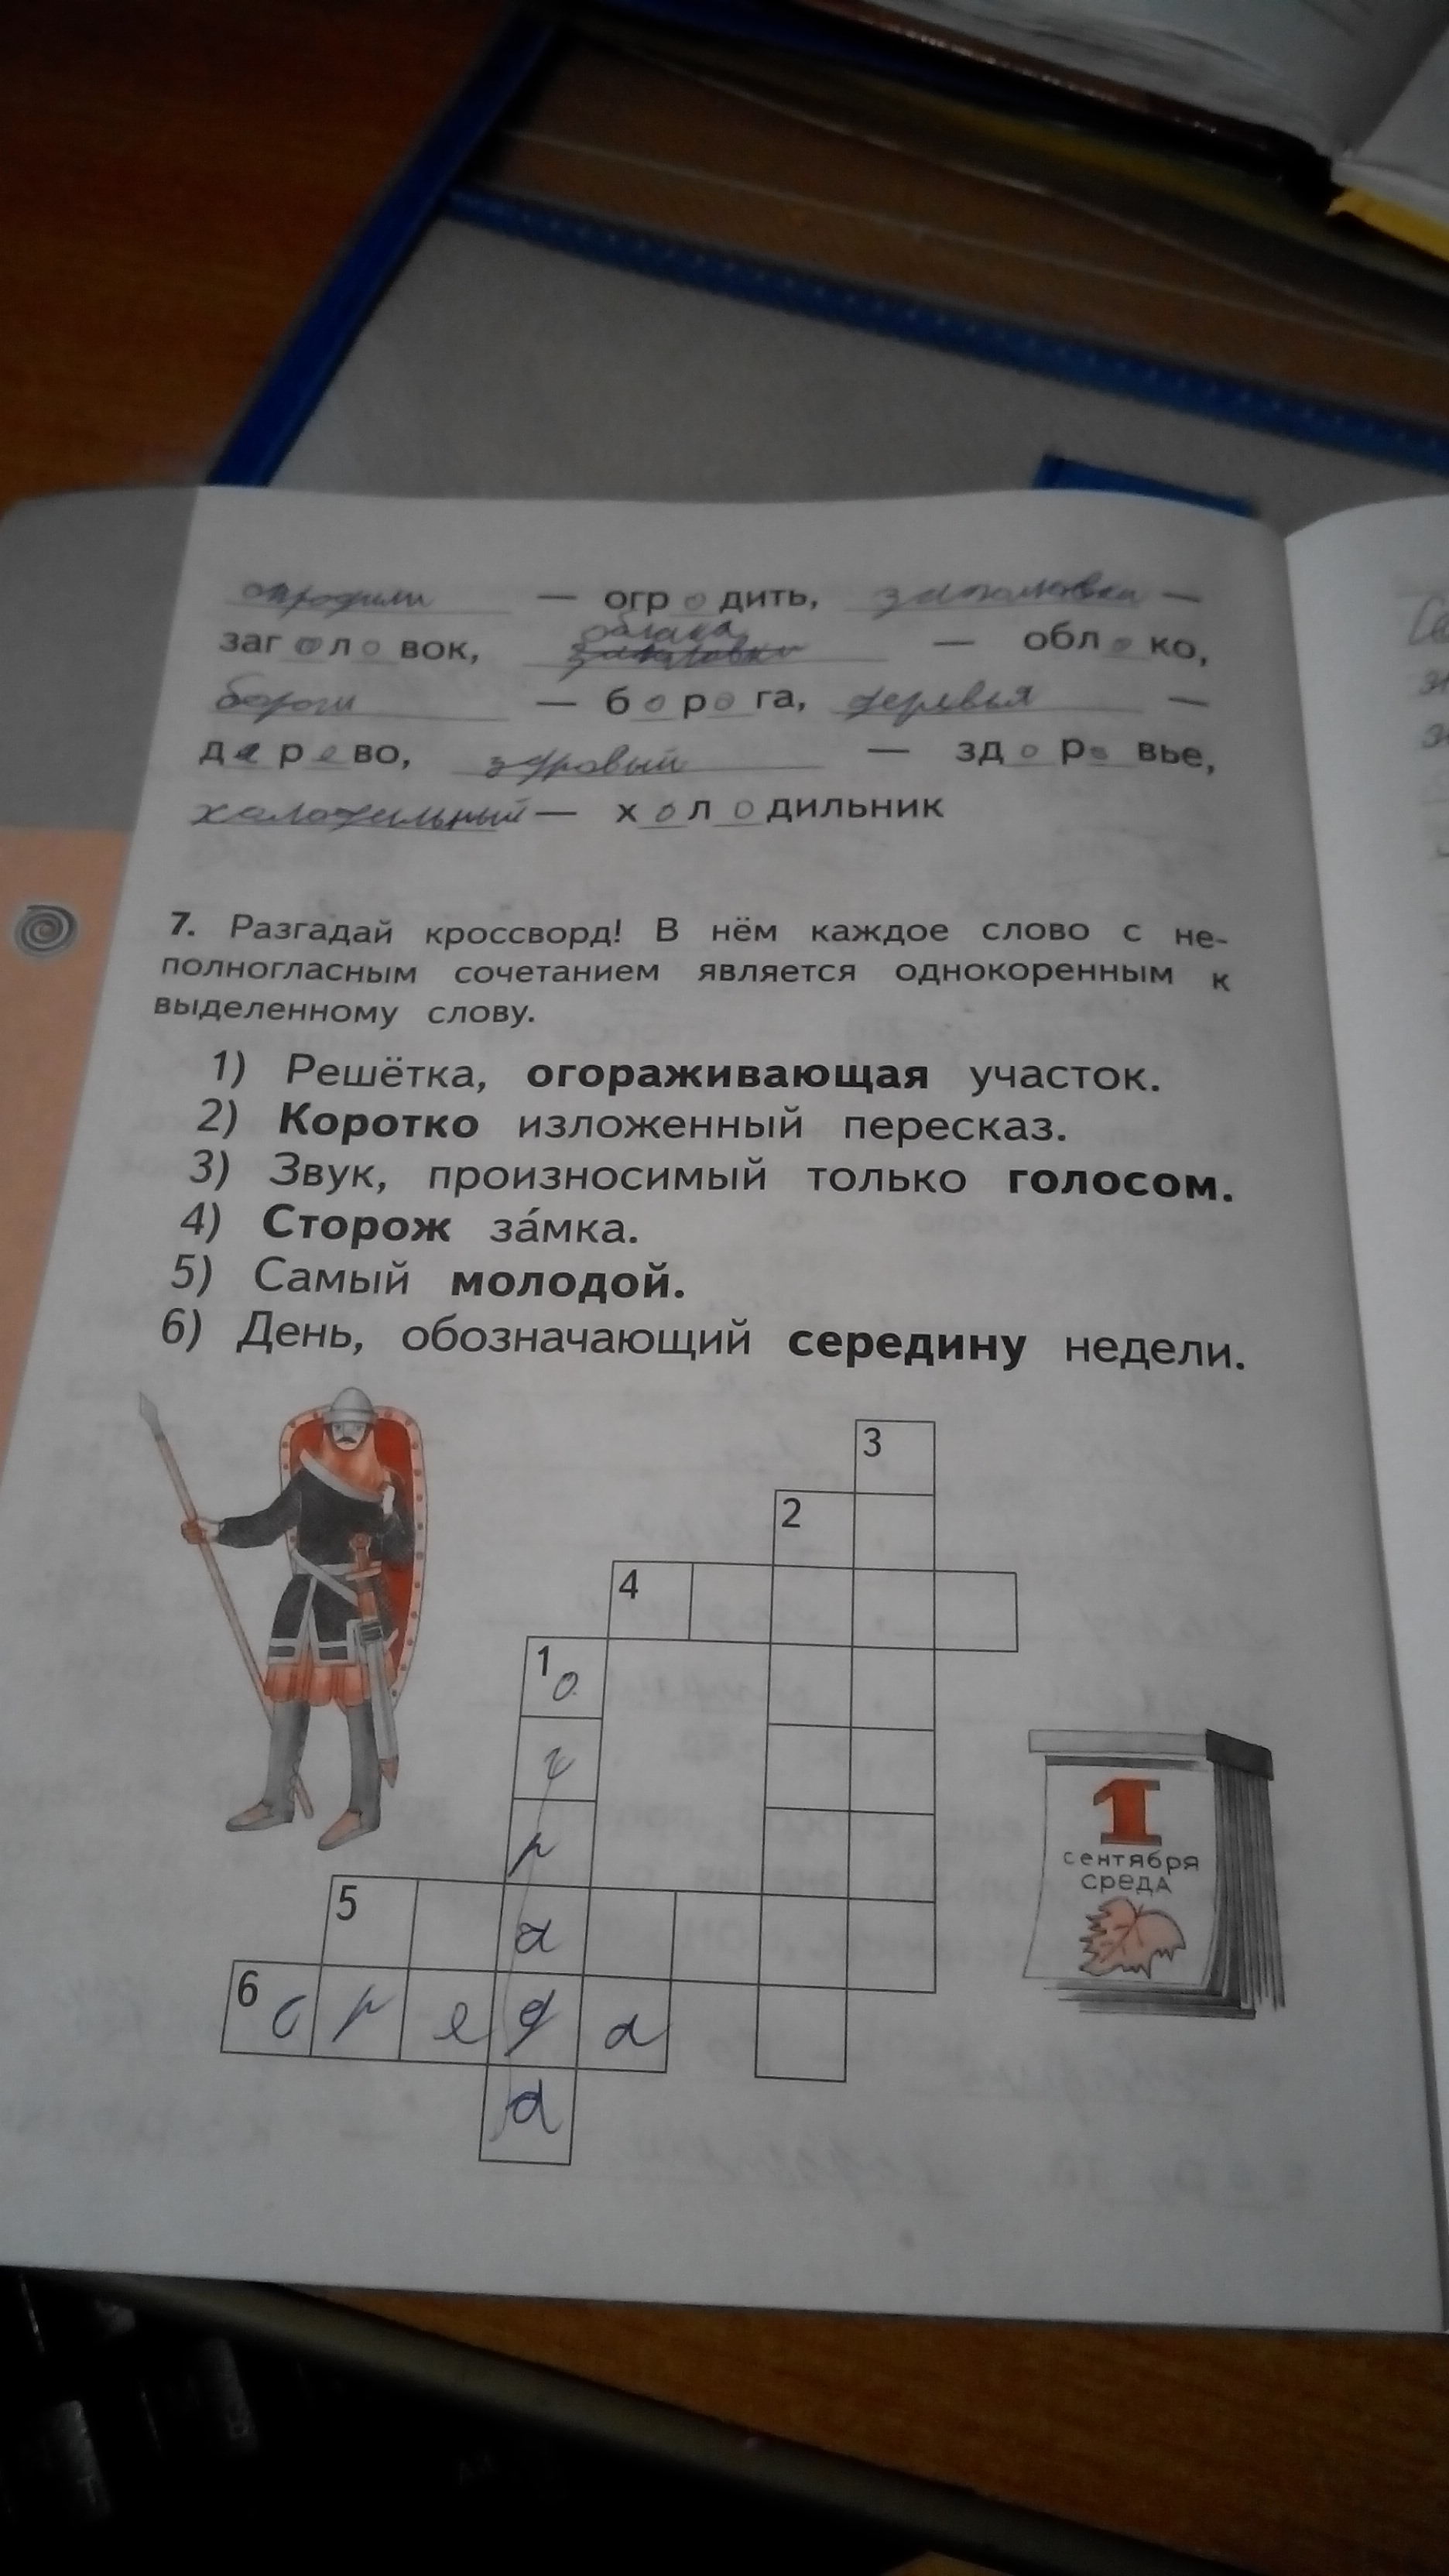 — огродить, —
заголовок, облака — облоко,
бороги — борога, деревья —
дерево, здровый — здоровье,
холодильный — холодильник
7. Разгадай кроссворд! В нём каждое слово с не-
полногласным сочетанием является однокоренным к
выделенному слову.
1) Решётка, огораживающая участок.
2) Коротко изложенный пересказ.
3) Звук, произносимый только голосом.
4) Сторож за́мка.
5) Самый молодой.
6) День, обозначающий середину недели.
3
2
4
1 о
г
р
5 а
6 с р е д а
а
1
сентября
среда